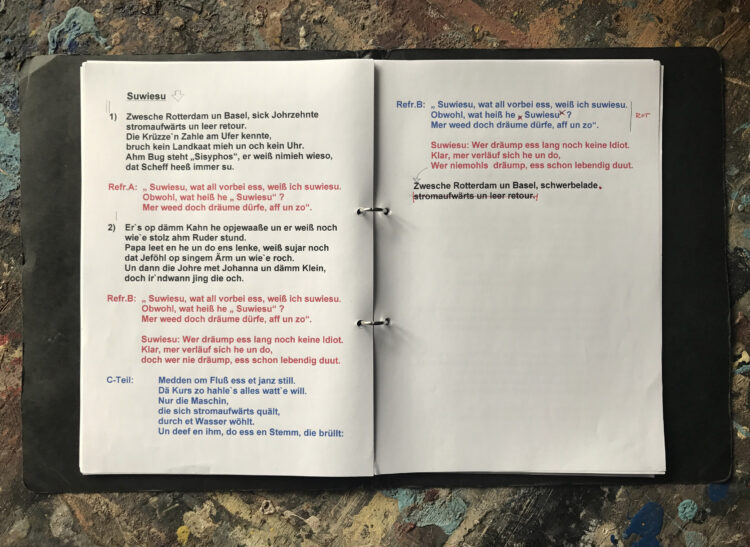 Suwiesu
1) Zwesche Rotterdam un Basel, sick Johrzehnte
stromaufwärts un leer retour.
Die Krüzze`n Zahle am Ufer kennte,
bruch kein Landkaat mieh un och kein Uhr.
Ahm Bug steht „Sisyphos“, er weiß nimieh wieso,
dat Scheff heeß immer su.
Refr.A: „ Suwiesu, wat all vorbei ess, weiß ich suwiesu.
Obwohl, wat heiß he „ Suwiesu“ ?
Mer weed doch dräume dürfe, aff un zo“.
2) Er`s op dämm Kahn he opjewaaße un er weiß noch
wie`e stolz ahm Ruder stund.
Papa leet en he un do ens lenke, weiß sujar noch
dat Jeföhl op singem Ärm un wie`e roch.
Un dann die Johre met Johanna un dämm Klein,
doch ir`ndwann jing die och.
Refr.B: „ Suwiesu, wat all vorbei ess, weiß ich suwiesu.
Obwohl, wat heiß he „ Suwiesu“ ?
Mer weed doch dräume dürfe, aff un zo“.
Suwiesu: Wer dräump ess lang noch keine Idiot.
Klar, mer verläuf sich he un do,
doch wer nie dräump, ess schon lebendig duut.
C-Teil: Medden om Fluß ess et janz still.
Dä Kurs zo hahle`s alles watt`e will.
Nur die Maschin,
die sich stromaufwärts quält,
durch et Wasser wöhlt.
Un deef en ihm, do ess en Stemm, die brüllt:
Refr.B: „ Suwiesu, wat all vorbei ess, weiß ich suwiesu.
Obwohl, wat heiß he „ Suwiesu“ ? ROT
Mer weed doch dräume dürfe, aff un zo“.
Suwiesu: Wer dräump ess lang noch keine Idiot.
Klar, mer verläuf sich he un do,
Wer niemohls dräump, ess schon lebendig duut.
Zwesche Rotterdam un Basel, schwerbelade.
stromaufwärts un leer retour.